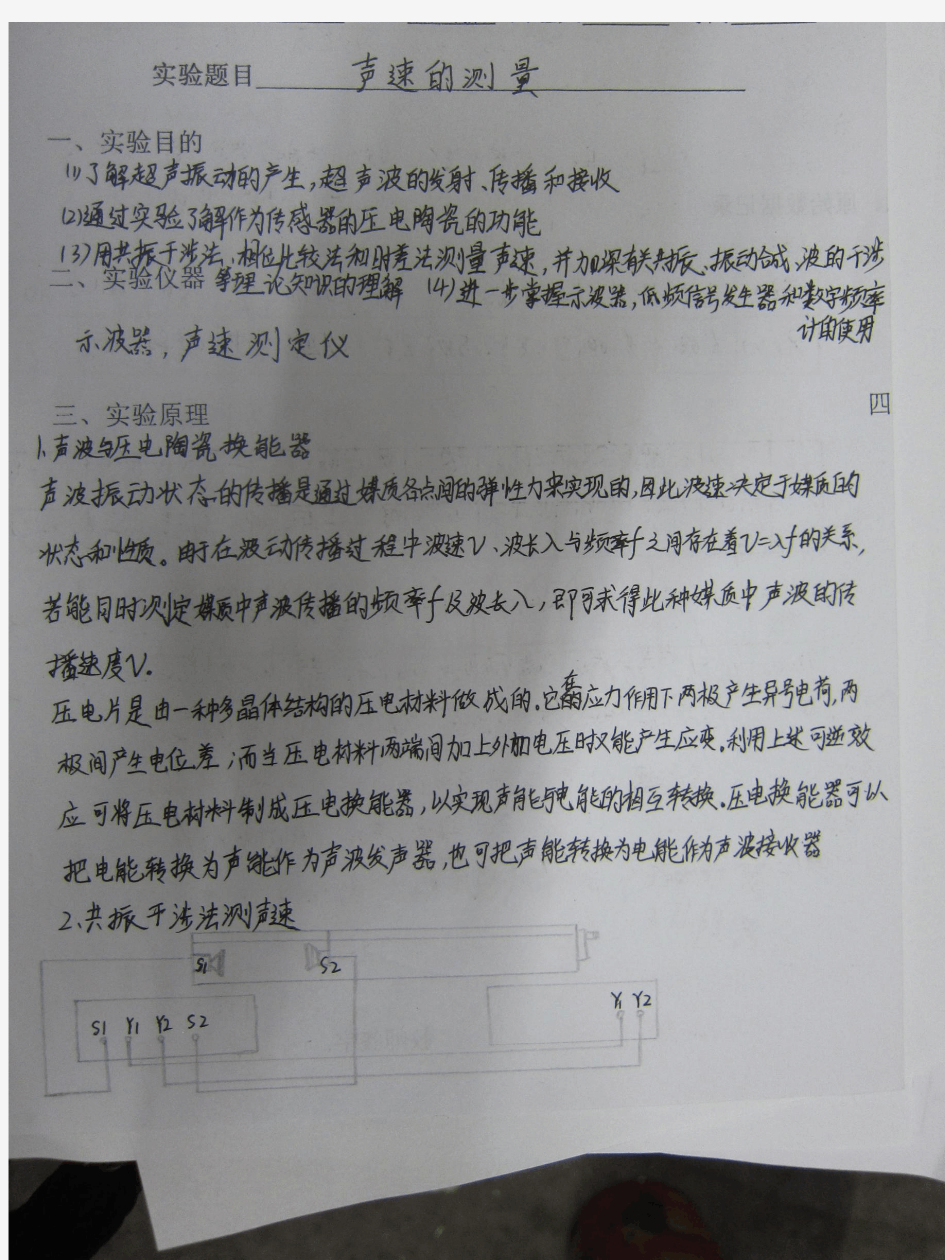 实验题目 声速的测量
一、实验目的
(1)了解超声振动的产生,超声波的发射、传播和接收
(2)通过实验了解作为传感器的压电陶瓷的功能
(3)用共振干涉法、相位比较法和时差法测量声速,并加深有关共振、振动合成、波的干涉
等理论知识的理解 (4)进一步掌握示波器,低频信号发生器和数字频率
计的使用
二、实验仪器
示波器,声速测定仪
三、实验原理
四
1、声波与压电陶瓷换能器
声波振动状态的传播是通过媒质各点间的弹性力来实现的,因此波速决定于媒质的
状态和性质。由于在波动传播过程中波速V、波长λ与频率f之间存在着V=λf的关系,
若能同时测定媒质中声波传播的频率f及波长λ,即可求得此种媒质中声波的传
播速度V。
压电片是由一种多晶体结构的压电材料做成的。它在应力作用下两极产生异号电荷,两
极间产生电位差;而当压电材料两端间加上外加电压时又能产生应变。利用上述可逆效
应可将压电材料制成压电换能器,以实现声能与电能的相互转换。压电换能器可以
把电能转换为声能作为声波发声器,也可把声能转换为电能作为声波接收器
2、共振干涉法测声速
S1 S2
S1 Y1 Y2 S2
Y1 Y2